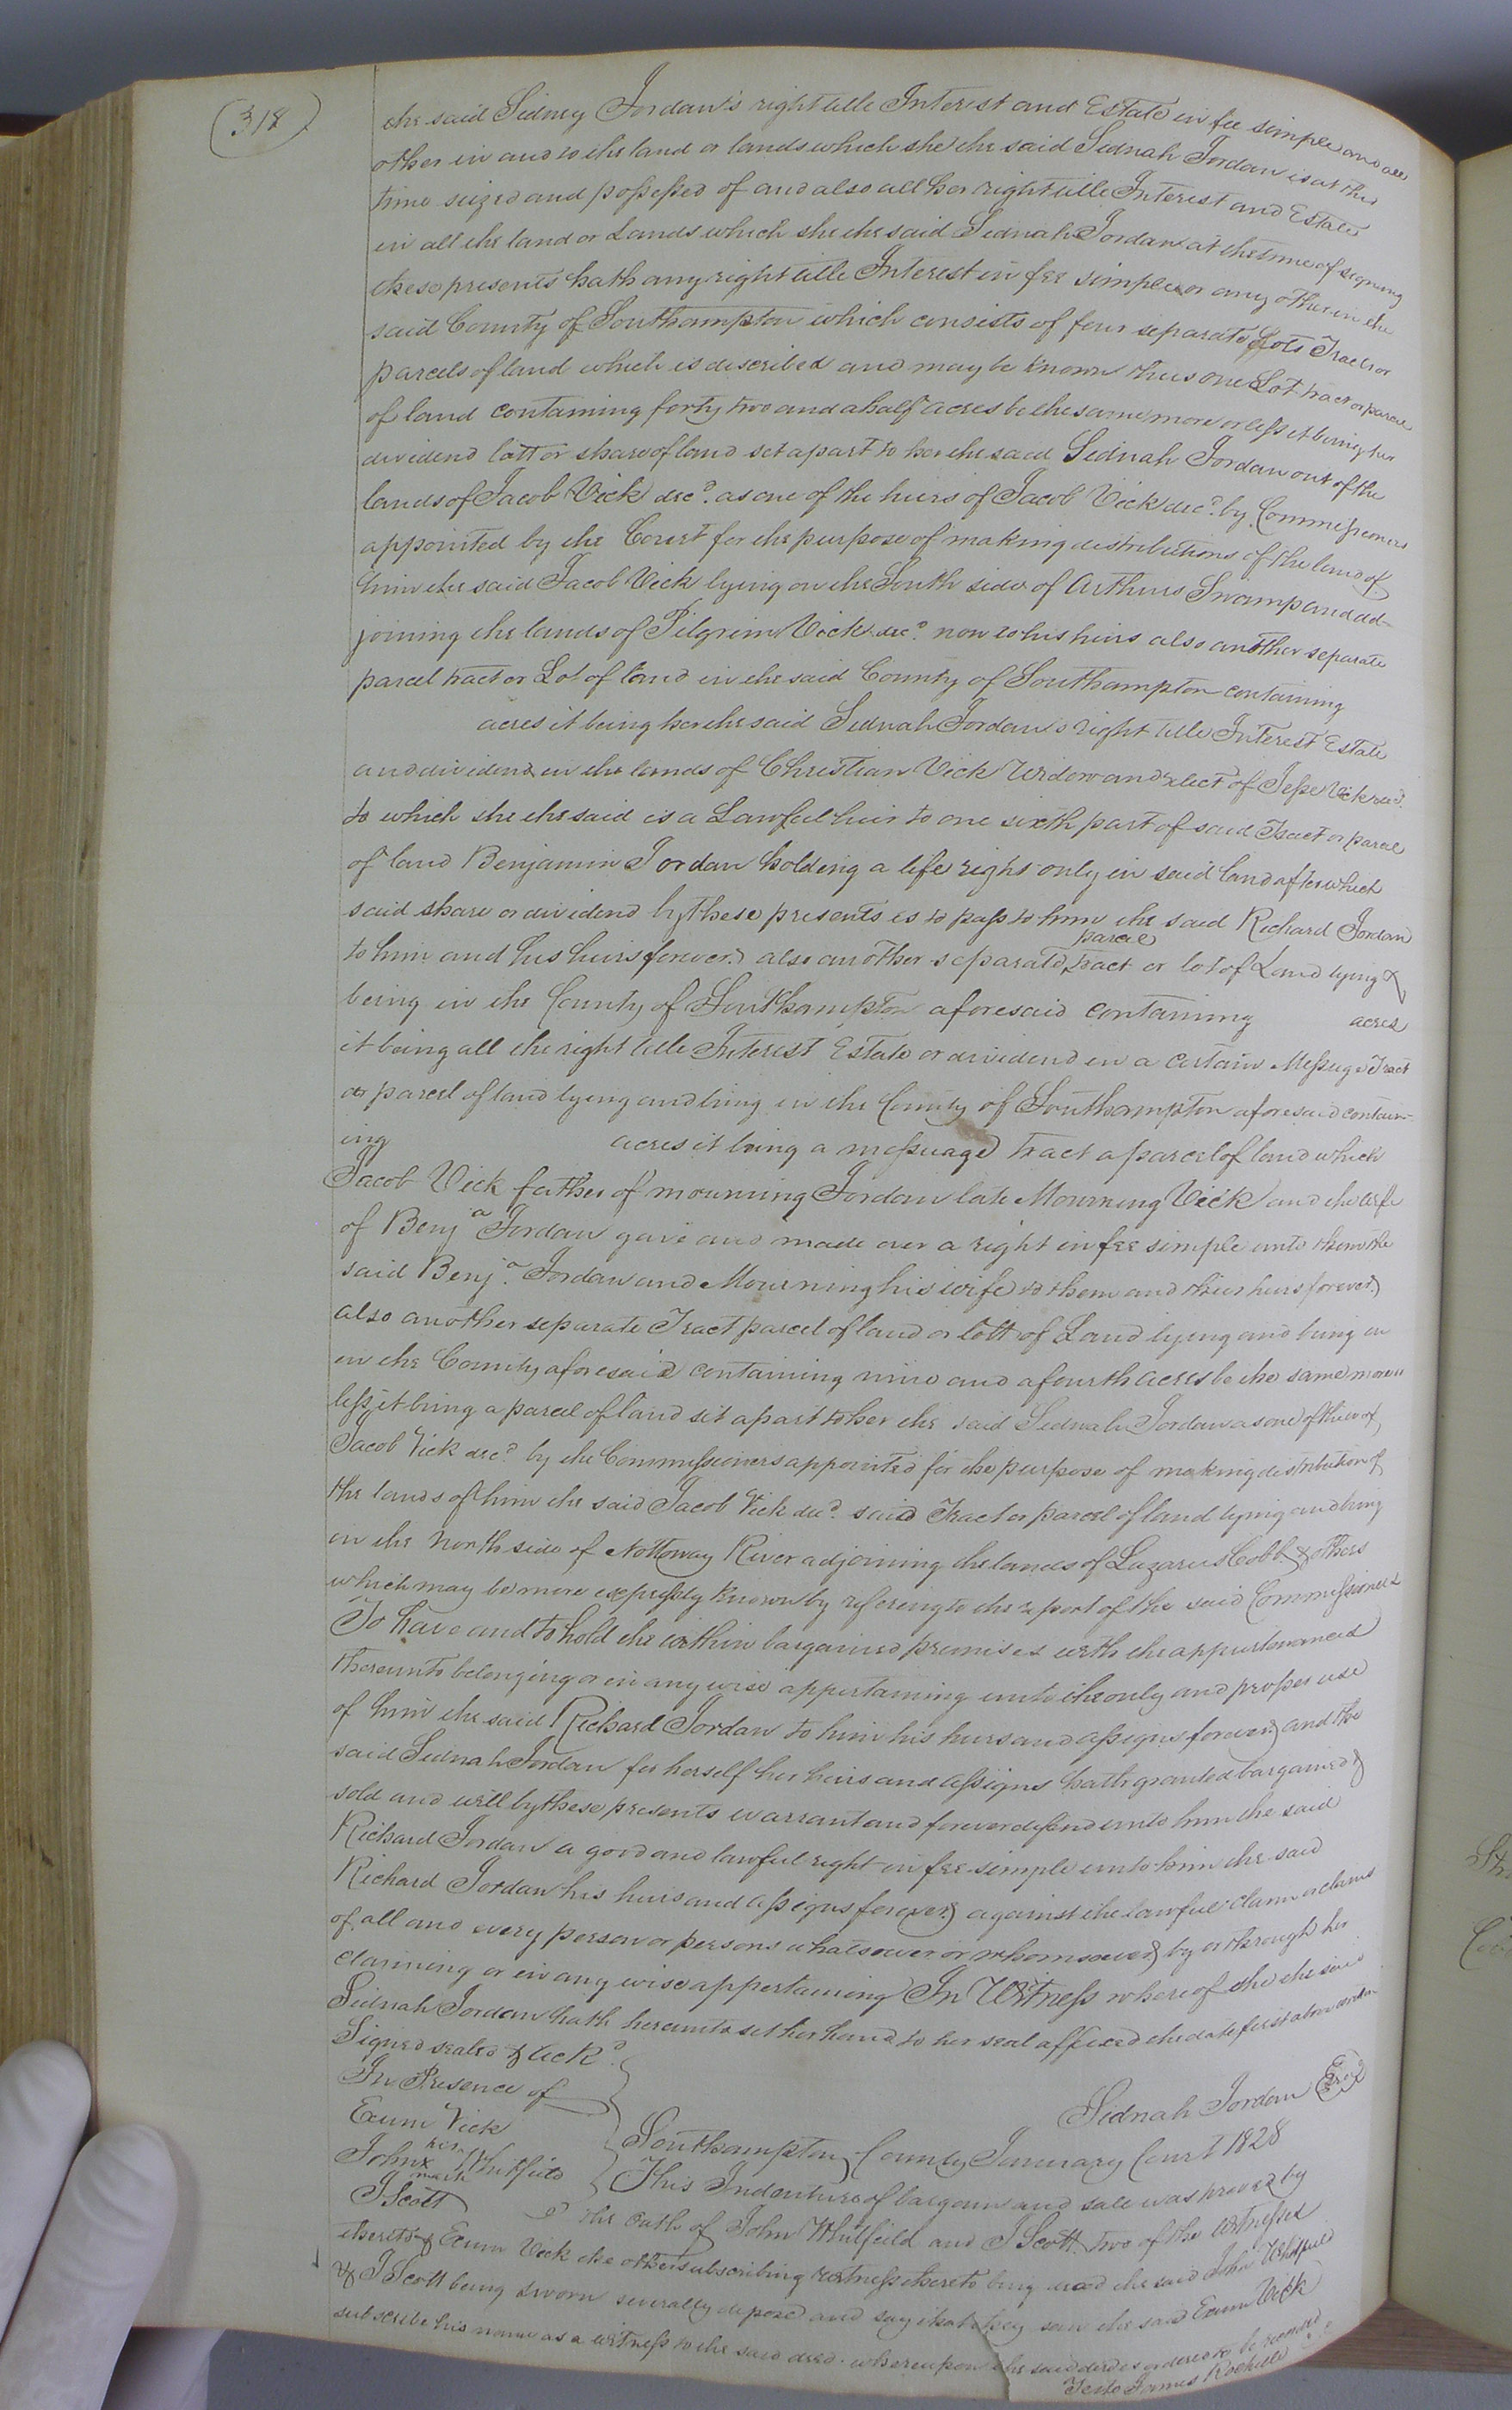 (318)
the said Sidney Jordan's right title Interest and Estate in fee simple and all
other in and to the land or lands which she the said Sidnah Jordan is at this
time seized and possessed of and also all her right title Interest and Estate
in all the land or Lands which she the said Sidnah Jordan at the time of signing
these presents hath any right title Interest in fee simple or any other in the
said County of Southampton which consists of four separate Lots Tracts or
parcels of land which is described and may be known thus one Lot tract or parcel
of land containing forty two and a half acres be the same more or less it being her
dividend lott or share of land set apart to her the said Sidnah Jordan out of the
lands of Jacob Vick decd. as one of the heirs of Jacob Vick decd. by Commissioners
appointed by the Court for the purpose of making distributions of the land of
him the said Jacob Vick lying on the South side of Arthurs Swamp and ad-
joining the lands of Pilgrim Vick decd. now to his heirs also another separate
parcel tract or Lot of land in the said County of Southampton containing
acres it being her the said Sidnah Jordan's right title Interest Estate
and dividend in the lands of Christian Vick Widow and relect of Jesse Vick decd.
to which she the said is a Lawful heir to one sixth part of said Tract or parcel
of land Benjamin Jordan holding a life right only in said land after which
said share or dividend by these presents is to pass to him the said Richard Jordan
to him and his heirs forever also another separate parcel tract or lot of Land lying &
being in the County of Southampton aforesaid containing acres
it being all the right title Interest Estate or dividend in a certain Messuge Tract
or parcel of land lying and being in the County of Southampton aforesaid contain-
ing acres it being a messuage tract a parcel of land which
Jacob Vick father of mourning Jordan late Mourning Vick and the wife
of Benja Jordan gave and made over a right in fee simple unto them the
said Benja. Jordan and Mourning his wife to them and their heirs forever
also another separate Tract parcel of land or lott of Land lying and being in
in the County aforesaid containing nine and a fourth acres be the same more or
less it being a parcel of land set apart to her the said Sidnah Jordan as one of the of
Jacob Vick decd. by the Commissioners appointed for the purpose of making distribution of
the lands of him the said Jacob Vick decd. said Tract or parcel of land lying and being
on the North side of Nottoway River adjoining the lands of Lazarus Cobb & others
which may be more expressly known by refering to the report of the said Commissioners
To have and to hold the within bargained premises with the appurtenances
thereunto belonging or in any wise appertaining unto the only and proper use
of him the said Richard Jordan to him his heirs and assigns forever and the
said Sidnah Jordan for herself her heirs and assigns hath granted bargained &
sold and will by these presents warrant and forever defend unto him the said
Richard Jordan a good and lawful right in fee simple unto him the said
Richard Jordan his heirs and assigns forever against the lawful claim or claims
of all and every person or persons whatsoever or whomsoever by or through her
claiming or in any wise appertaining In Witness whereof she the said
Sidnah Jordan hath hereunto set her hand to her seal affixed the date first above written
Signed sealed & Ackd.
In Presence of
Sidnah Jordan (Seal)
Exum Vick
John his x mark Whitfield
J Scott
Southampton County January Court 1828
This Indenture of bargain and sale was proved by
the Oath of John Whitfield and J Scott two of the witnesses
thereto & Exum Vick the other subscribing witness thereto being dead the said John Whitfield
& J Scott being sworn severally depose and say that they saw the said Exum Vick
subscribe his name as a witness to the said deed whereupon the said deed is ordered to be recorded
Teste James Rochelle